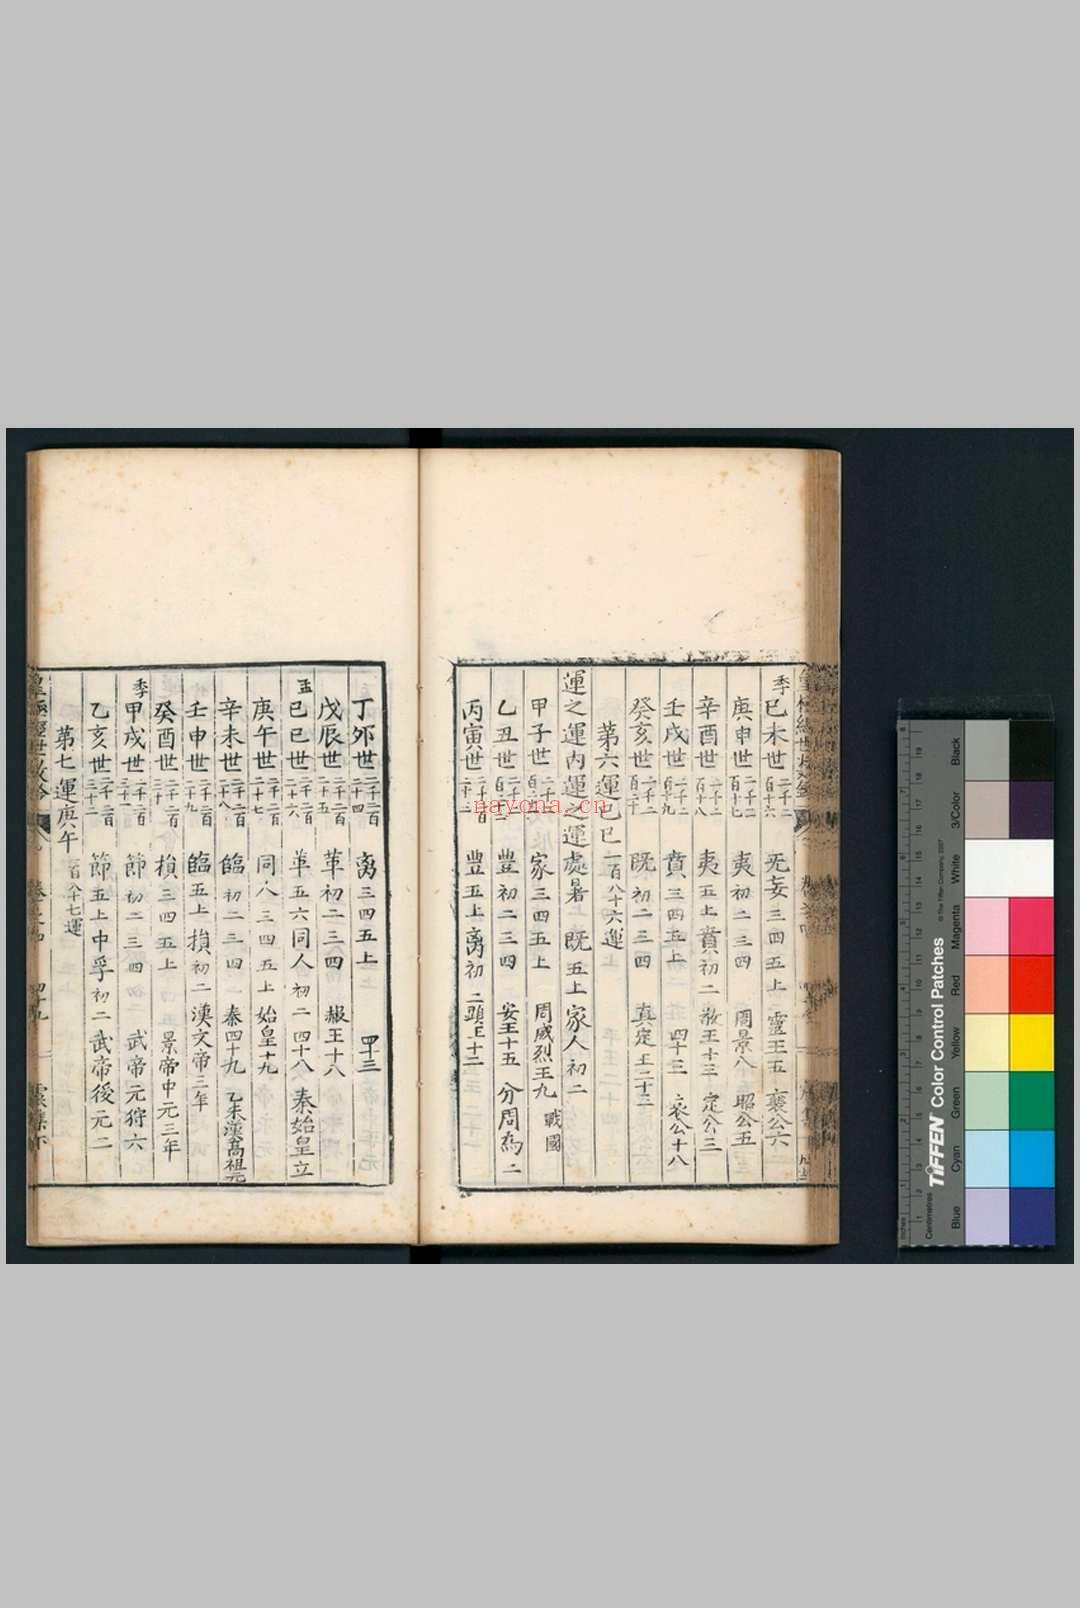 季己未世二千二百十六 无妄三四五上 靈王五 襄公六
庚申世二千二百十七 夷初二三四 周景八 昭公五
辛酉世二千二百十八 夷五上賁初二 敬王十三 定公三
壬戌世二千二百十九 賁三四五上 四十三 哀公十八
癸亥世二千二百二十 既初二三四 真定王二十三
第六運己巳一百八十六運
運之運內運之運處暑 既五上家人初二
甲子世 家三四五上 周威烈王九 戰國
乙丑世 豐初二三四 安王十五 分周為二
丙寅世 豐五上离初二 顯王十二
丁夘世二千二百二十四 离三四五上 四十三
戊辰世二千二百二十五 革初二三四 赧王十八
孟己巳世二千二百二十六 革五六同人初二 四十八 秦始皇立
庚午世二千二百二十七 同八三四五上 始皇十九
辛未世二千二百二十八 臨初二三四 秦四十九 乙未漢高祖元
壬申世二千二百二十九 臨五上損初二 漢文帝三年
癸酉世二千二百三十 損三四五上 景帝中元三年
季甲戌世二千二百三十一 節初二三四 武帝元狩六
乙亥世二千二百三十二 節五上中孚初二 武帝後元二
第七運庚午一百八十七運
皇極經世
卷之
四十九
nayona.cn
TIFFEN Color Control Patches
© The Tiffen Company, 2007
Inches
Centimetres
Blue
Cyan
Green
Yellow
Red
Magenta
White
3/Color
Black